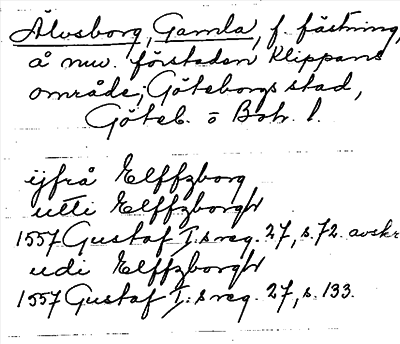 Älvsborg, Gamla, f. fästning,
å nuv. förstaden Klippans
område, Göteborgs stad,
Göteb. o Boh. l.
ijfrå Elffzborg
utti Elffzborgh
1557 Gustaf I:s reg. 27, s. 72. avskr
udi Elffzborgh
1557 Gustaf I:s reg. 27, s. 133.